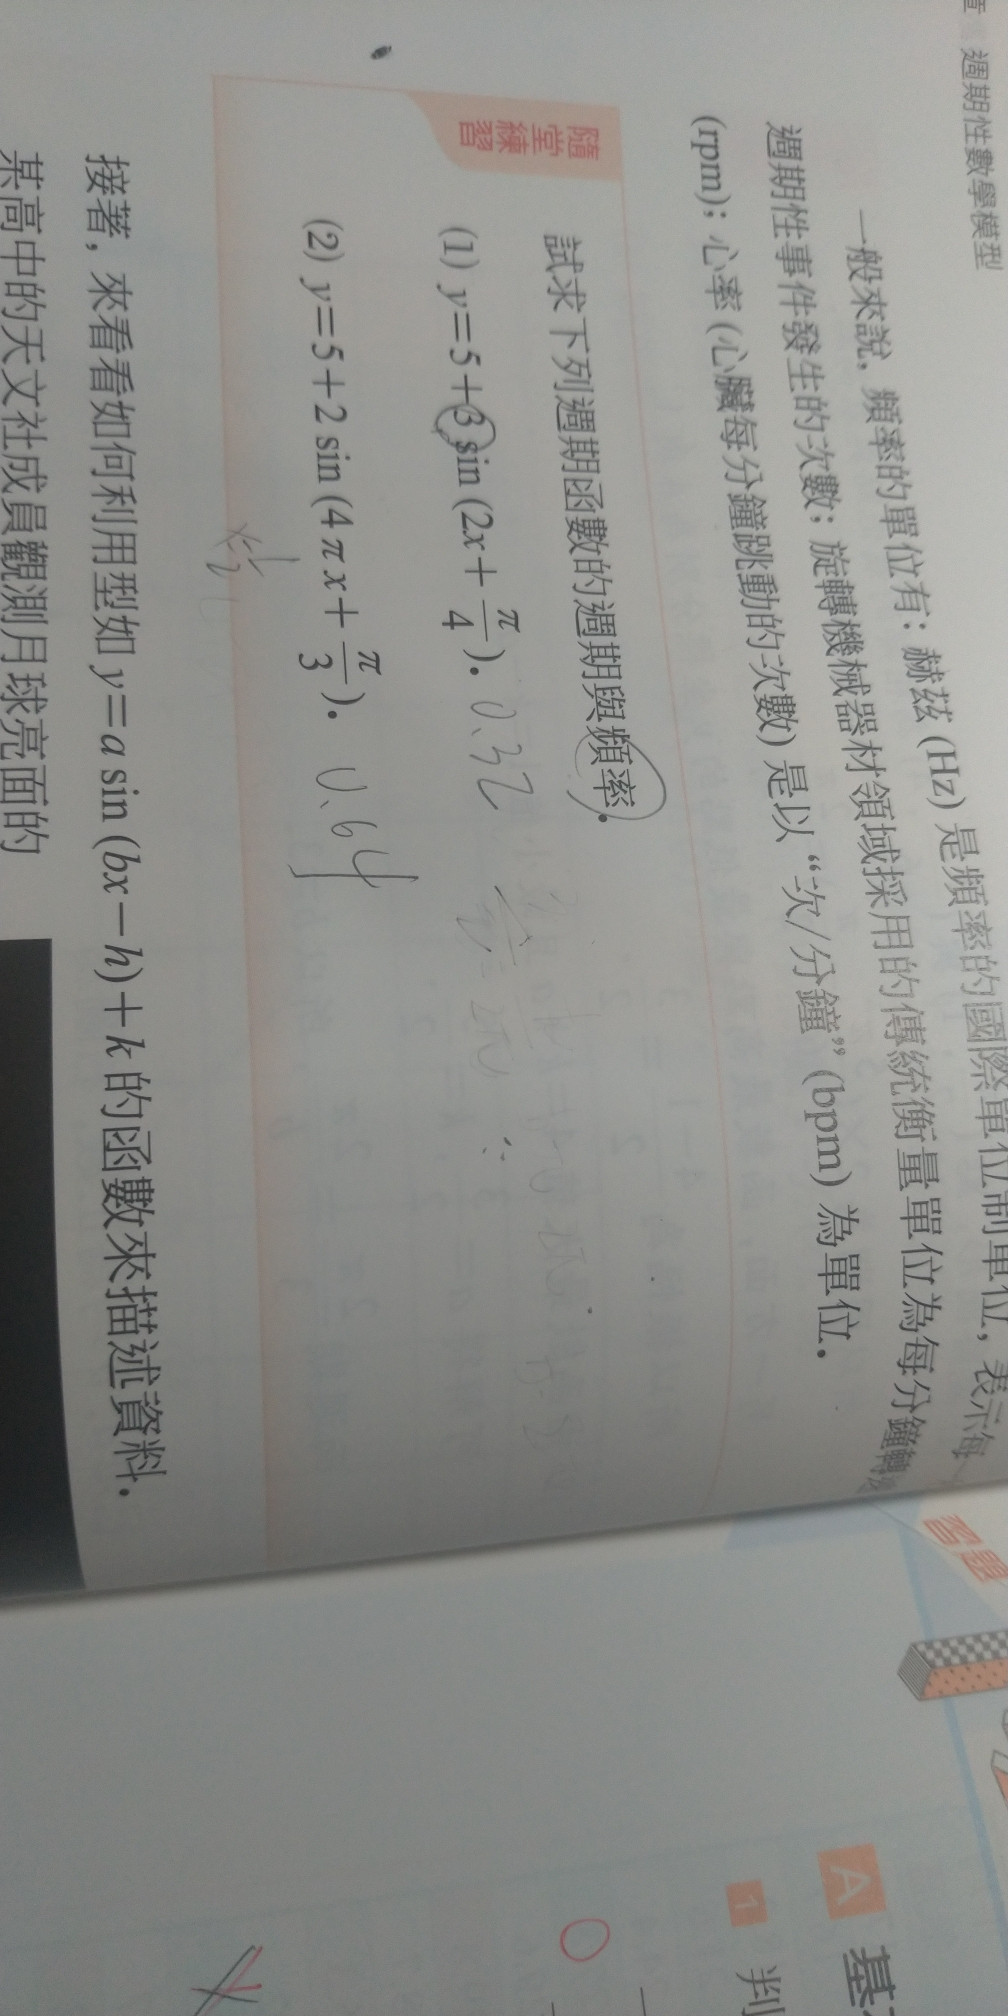 週期性數學模型
一般來說，頻率的單位有：赫茲 (Hz) 是頻率的國際單位制單位，表示每
週期性事件發生的次數；旋轉機械器材領域採用的傳統衡量單位為每分鐘轉
(rpm)；心率 (心臟每分鐘跳動的次數) 是以“次/分鐘” (bpm) 為單位．
隨堂練習
試求下列週期函數的週期與頻率．
(1) y=5+3 sin (2x+π/4)． 0.32
(2) y=5+2 sin (4πx+π/3)． 0.64
接著，來看看如何利用型如 y=a sin (bx−h)+k 的函數來描述資料．
某高中的天文社成員觀測月球亮面的
習題
A 基
1 判